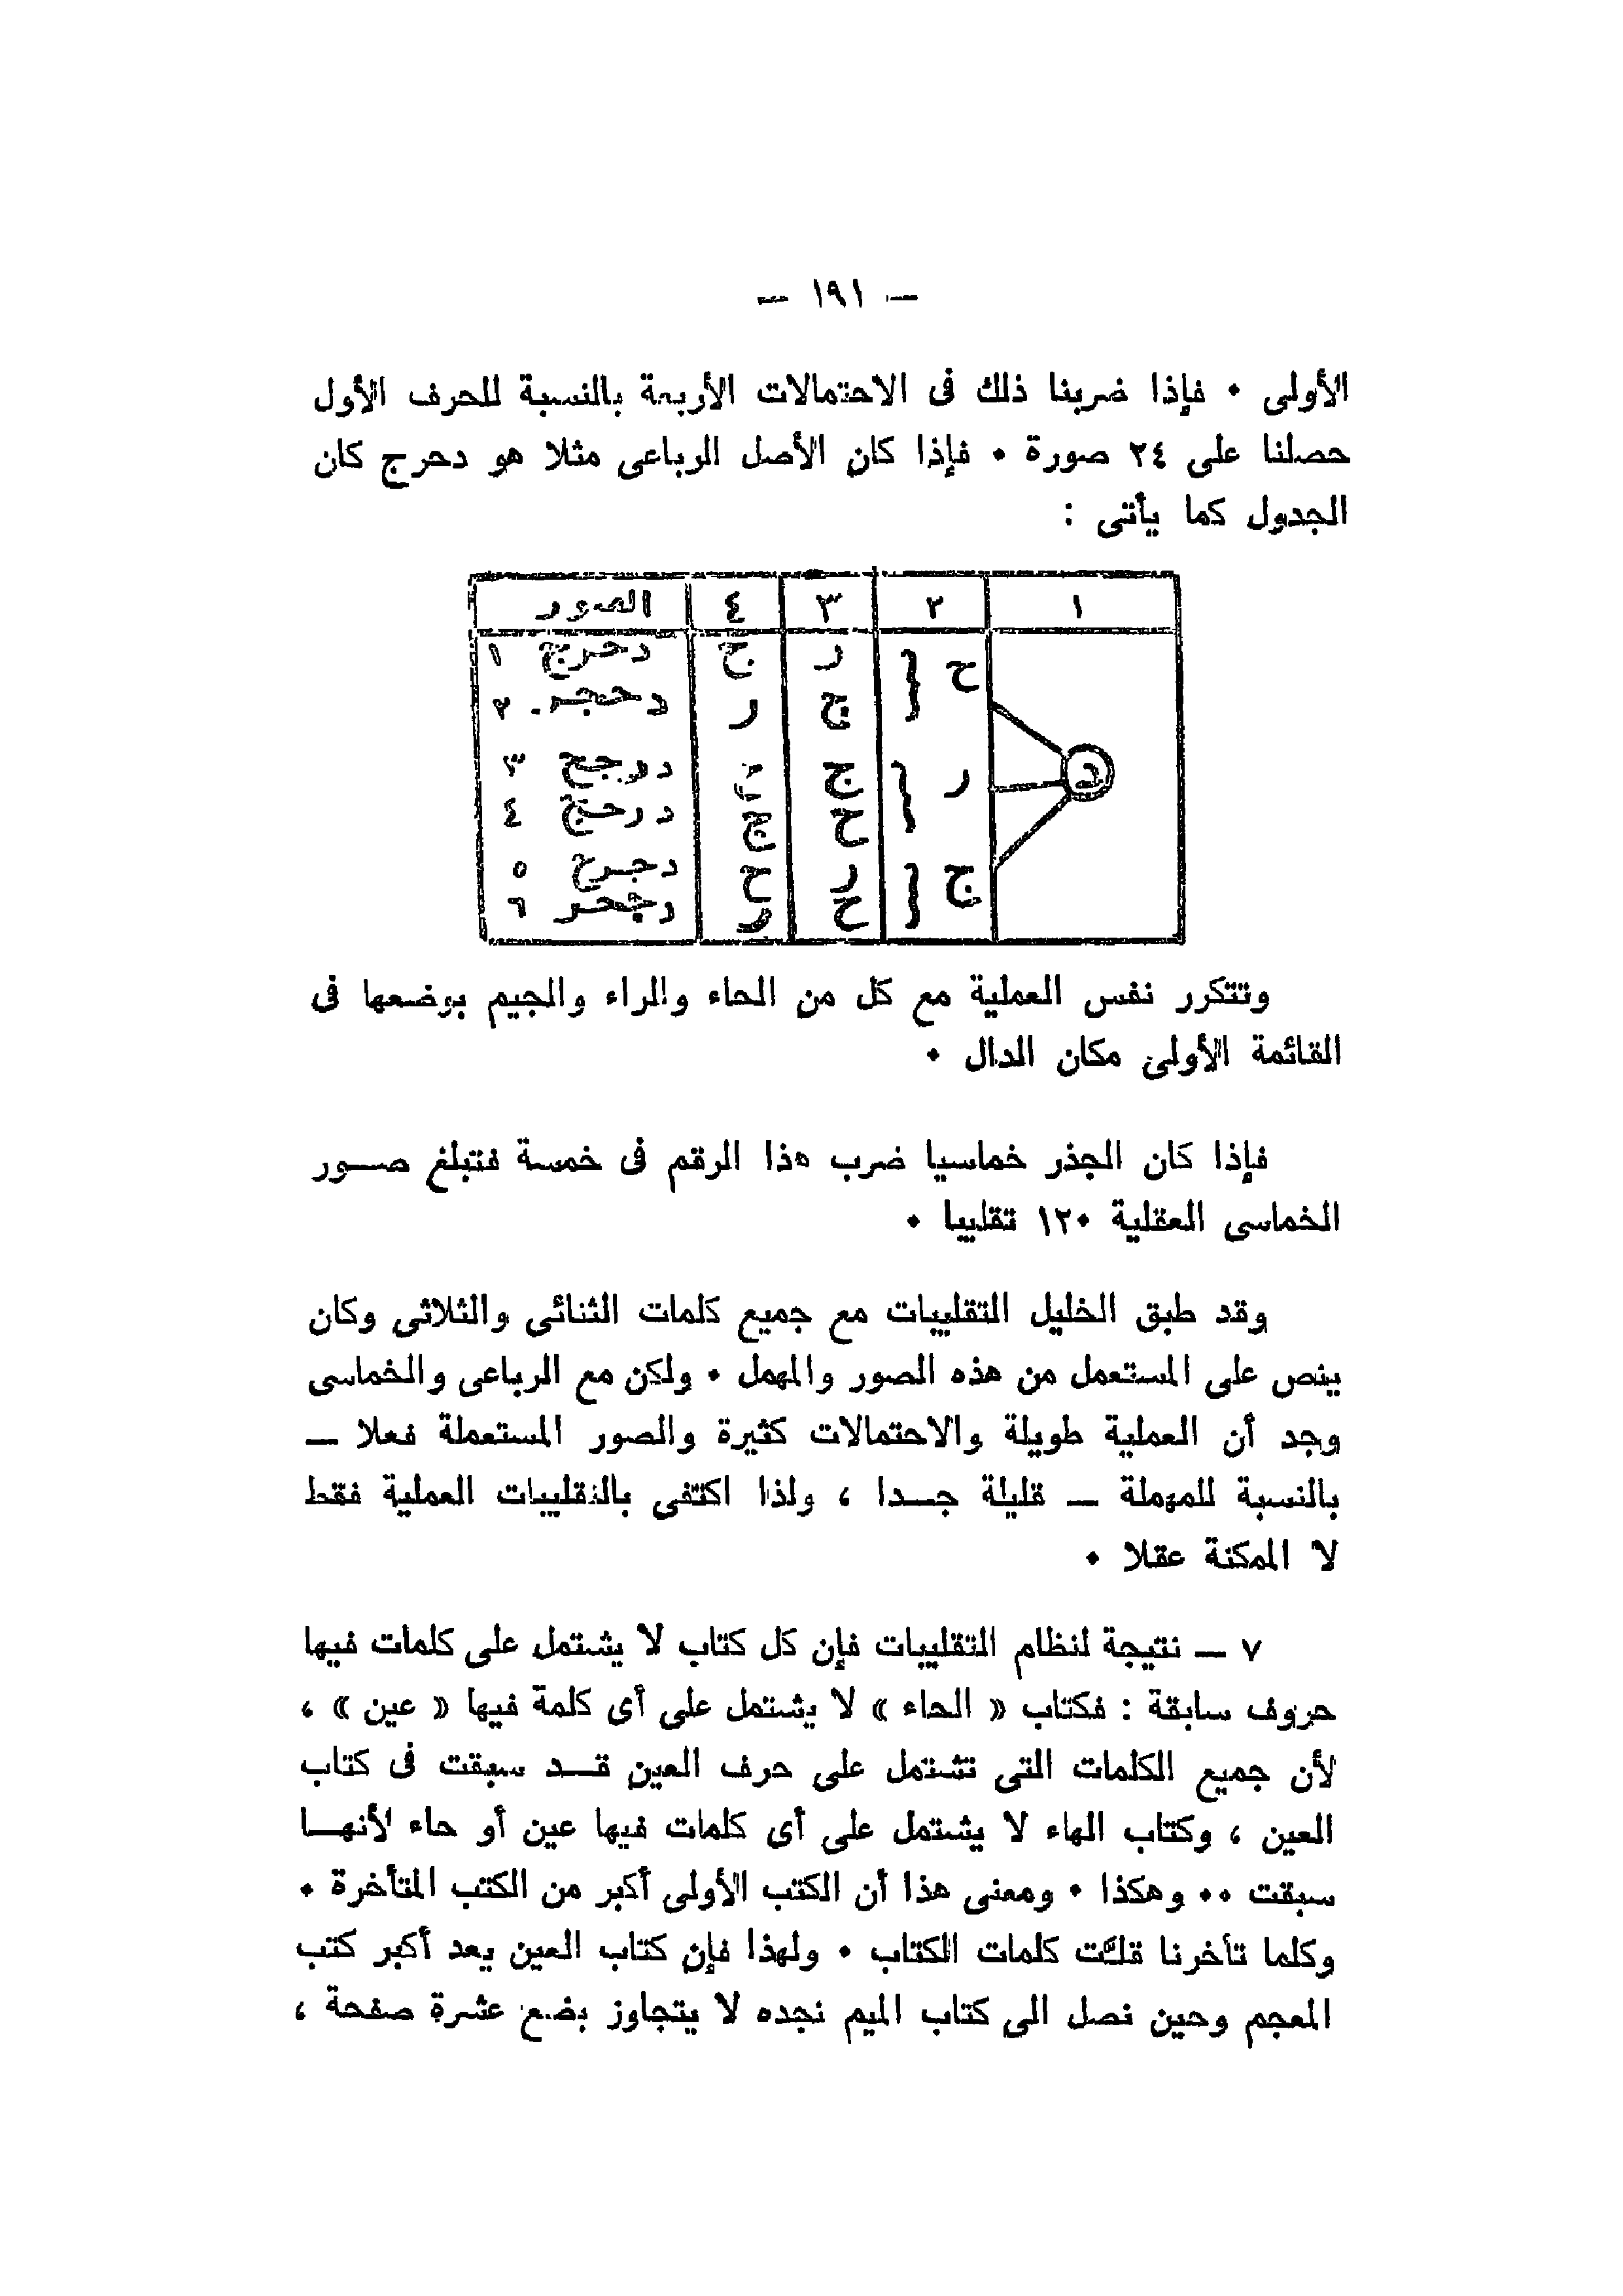 — ١٩١ —
الأولى ٠ فإذا ضربنا ذلك فى الاحتمالات الأربعة بالنسبة للحرف الأول
حصلنا على ٢٤ صورة ٠ فإذا كان الأصل الرباعى مثلا هو دحرج كان
الجدول كما يأتى :
١ ٢ ٣ ٤ الصور
د
ح ر ج دحرج ١
ج ر دحجر ٢
ر ج ح درجح ٣
ح ج درحج ٤
ج ر ح دجرح ٥
ح ر دجحر ٦
وتتكرر نفس العملية مع كل من الحاء والراء والجيم بوضعها فى
القائمة الأولى مكان الدال ٠
فإذا كان الجذر خماسيا ضرب هذا الرقم فى خمسة فتبلغ صـور
الخماسى العقلية ١٢٠ تقليبا ٠
وقد طبق الخليل التقليبات مع جميع كلمات الثنائى والثلاثى وكان
ينص على المستعمل من هذه الصور والمهمل ٠ ولكن مع الرباعى والخماسى
وجد أن العملية طويلة والاحتمالات كثيرة والصور المستعملة فعلا —
بالنسبة للمهملة — قليلة جـدا ، ولذا اكتفى بالتقليبات العملية فقط
لا الممكنة عقلا ٠
٧ — نتيجة لنظام التقليبات فإن كل كتاب لا يشتمل على كلمات فيها
حروف سابقة : فكتاب « الحاء » لا يشتمل على أى كلمة فيها « عين » ،
لأن جميع الكلمات التى تشتمل على حرف العين قـد سبقت فى كتاب
العين ، وكتاب الهاء لا يشتمل على أى كلمات فيها عين أو حاء لأنهـا
سبقت ٠٠ وهكذا ٠ ومعنى هذا أن الكتب الأولى أكبر من الكتب المتأخرة ٠
وكلما تأخرنا قلَّت كلمات الكتاب ٠ ولهذا فإن كتاب العين يعد أكبر كتب
المعجم وحين نصل الى كتاب الميم نجده لا يتجاوز بضع عشرة صفحة ،